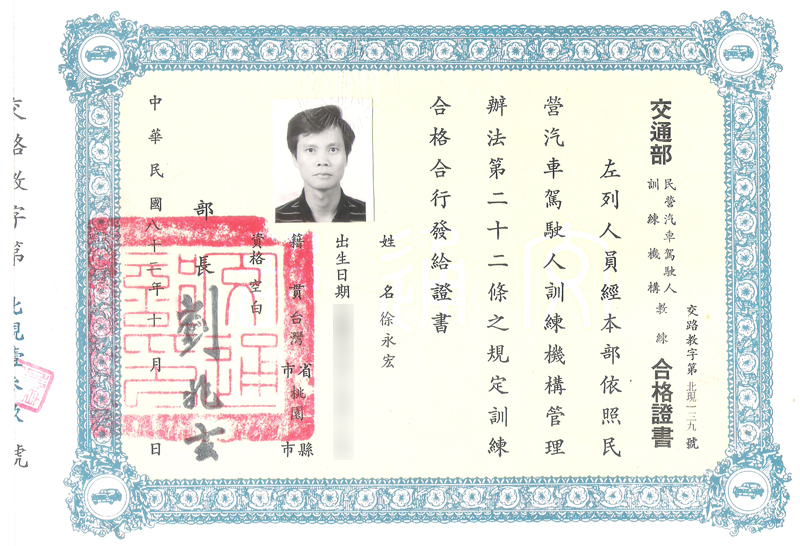 交通部
民營汽車駕駛人
訓練機構
教練
合格證書
交路教字第北現一三九號
左列人員經本部依照民
營汽車駕駛人訓練機構管理
辦法第二十二條之規定訓練
合格合行發給證書
姓名徐永宏
出生日期
籍貫台灣省市桃園縣市
資格空白
部長劉兆玄
中華民國八十七年十月日
交路教字第北現壹參玖號